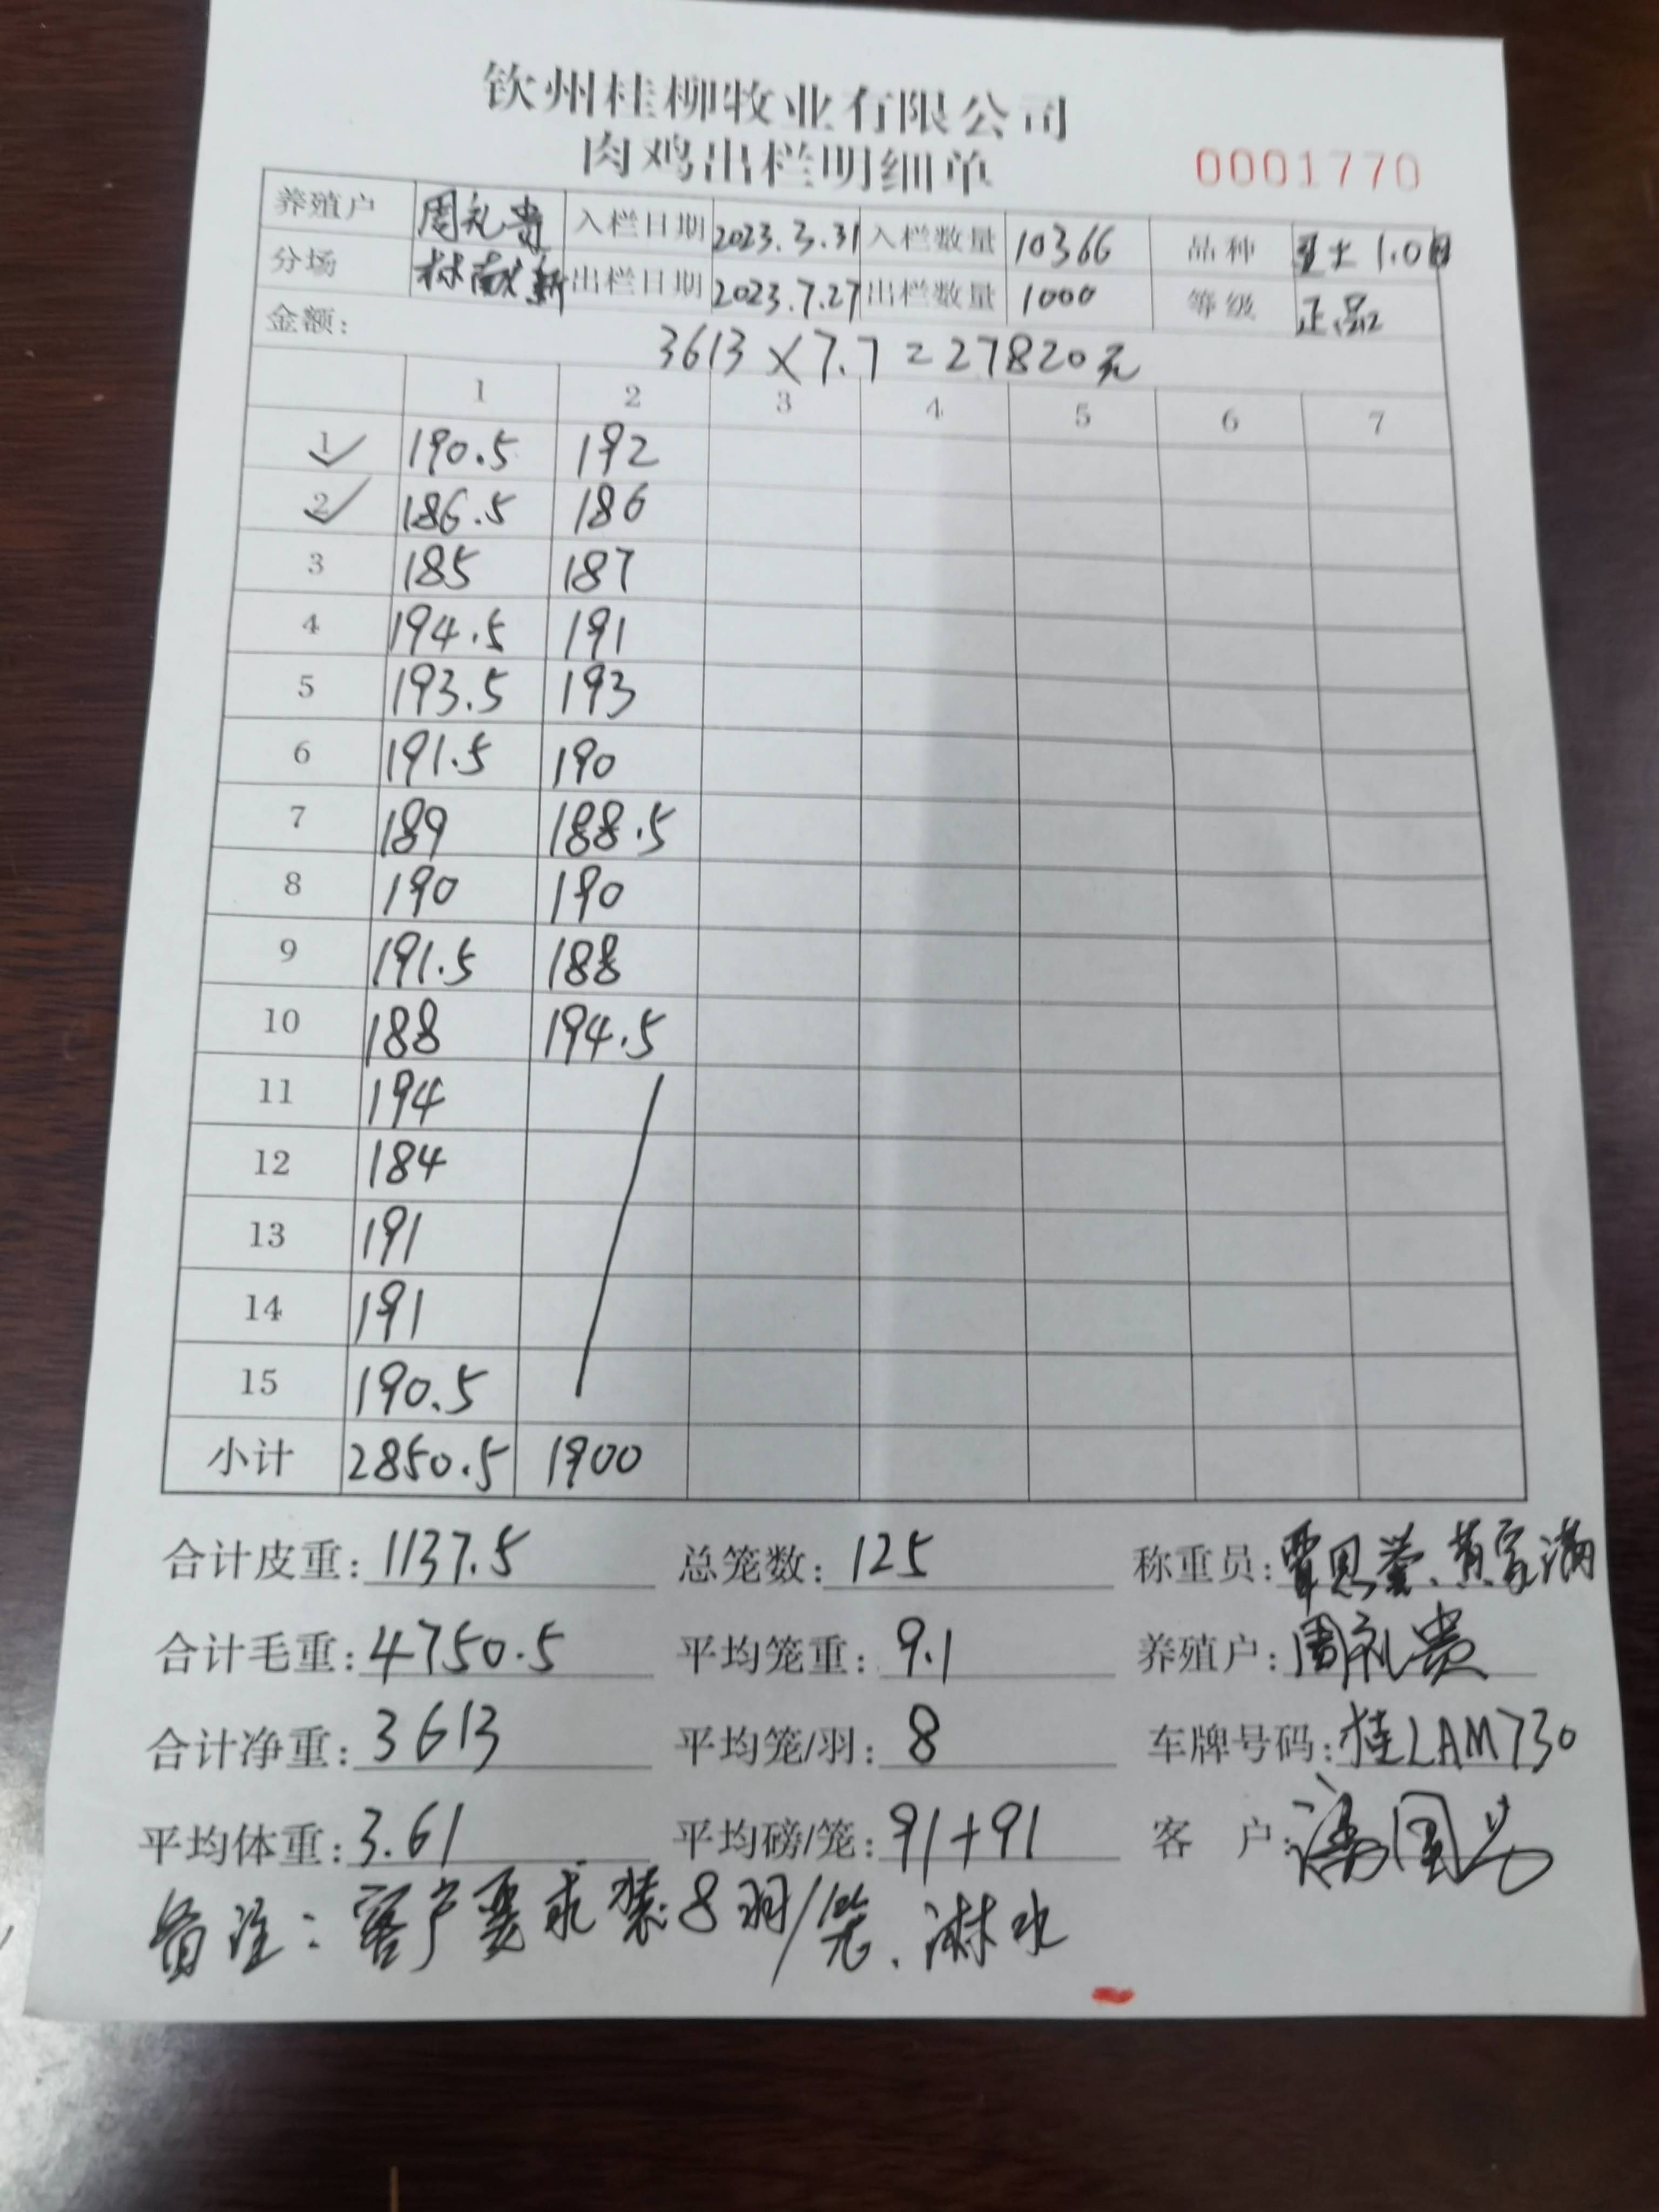 钦州桂柳牧业有限公司
肉鸡出栏明细单
0001770
养殖户 周礼贵 入栏日期 2023.3.31 入栏数量 10366 品种 土 1.0
分场 林献新 出栏日期 2023.7.27 出栏数量 1000 等级 正品
金额: 3613×7.7=27820元
1 2 3 4 5 6 7
1 190.5 192
2 186.5 186
3 185 187
4 194.5 191
5 193.5 193
6 191.5 190
7 189 188.5
8 190 190
9 191.5 188
10 188 194.5
11 194
12 184
13 191
14 191
15 190.5
小计 2850.5 1900
合计皮重: 1137.5 总笼数: 125 称重员: 覃恩 、黄家满
合计毛重: 4750.5 平均笼重: 9.1 养殖户: 周礼贵
合计净重: 3613 平均笼/羽: 8 车牌号码: 桂LAM730
平均体重: 3.61 平均磅/笼: 91+91 客 户:
备注: 客户要求装8羽/笼、淋水